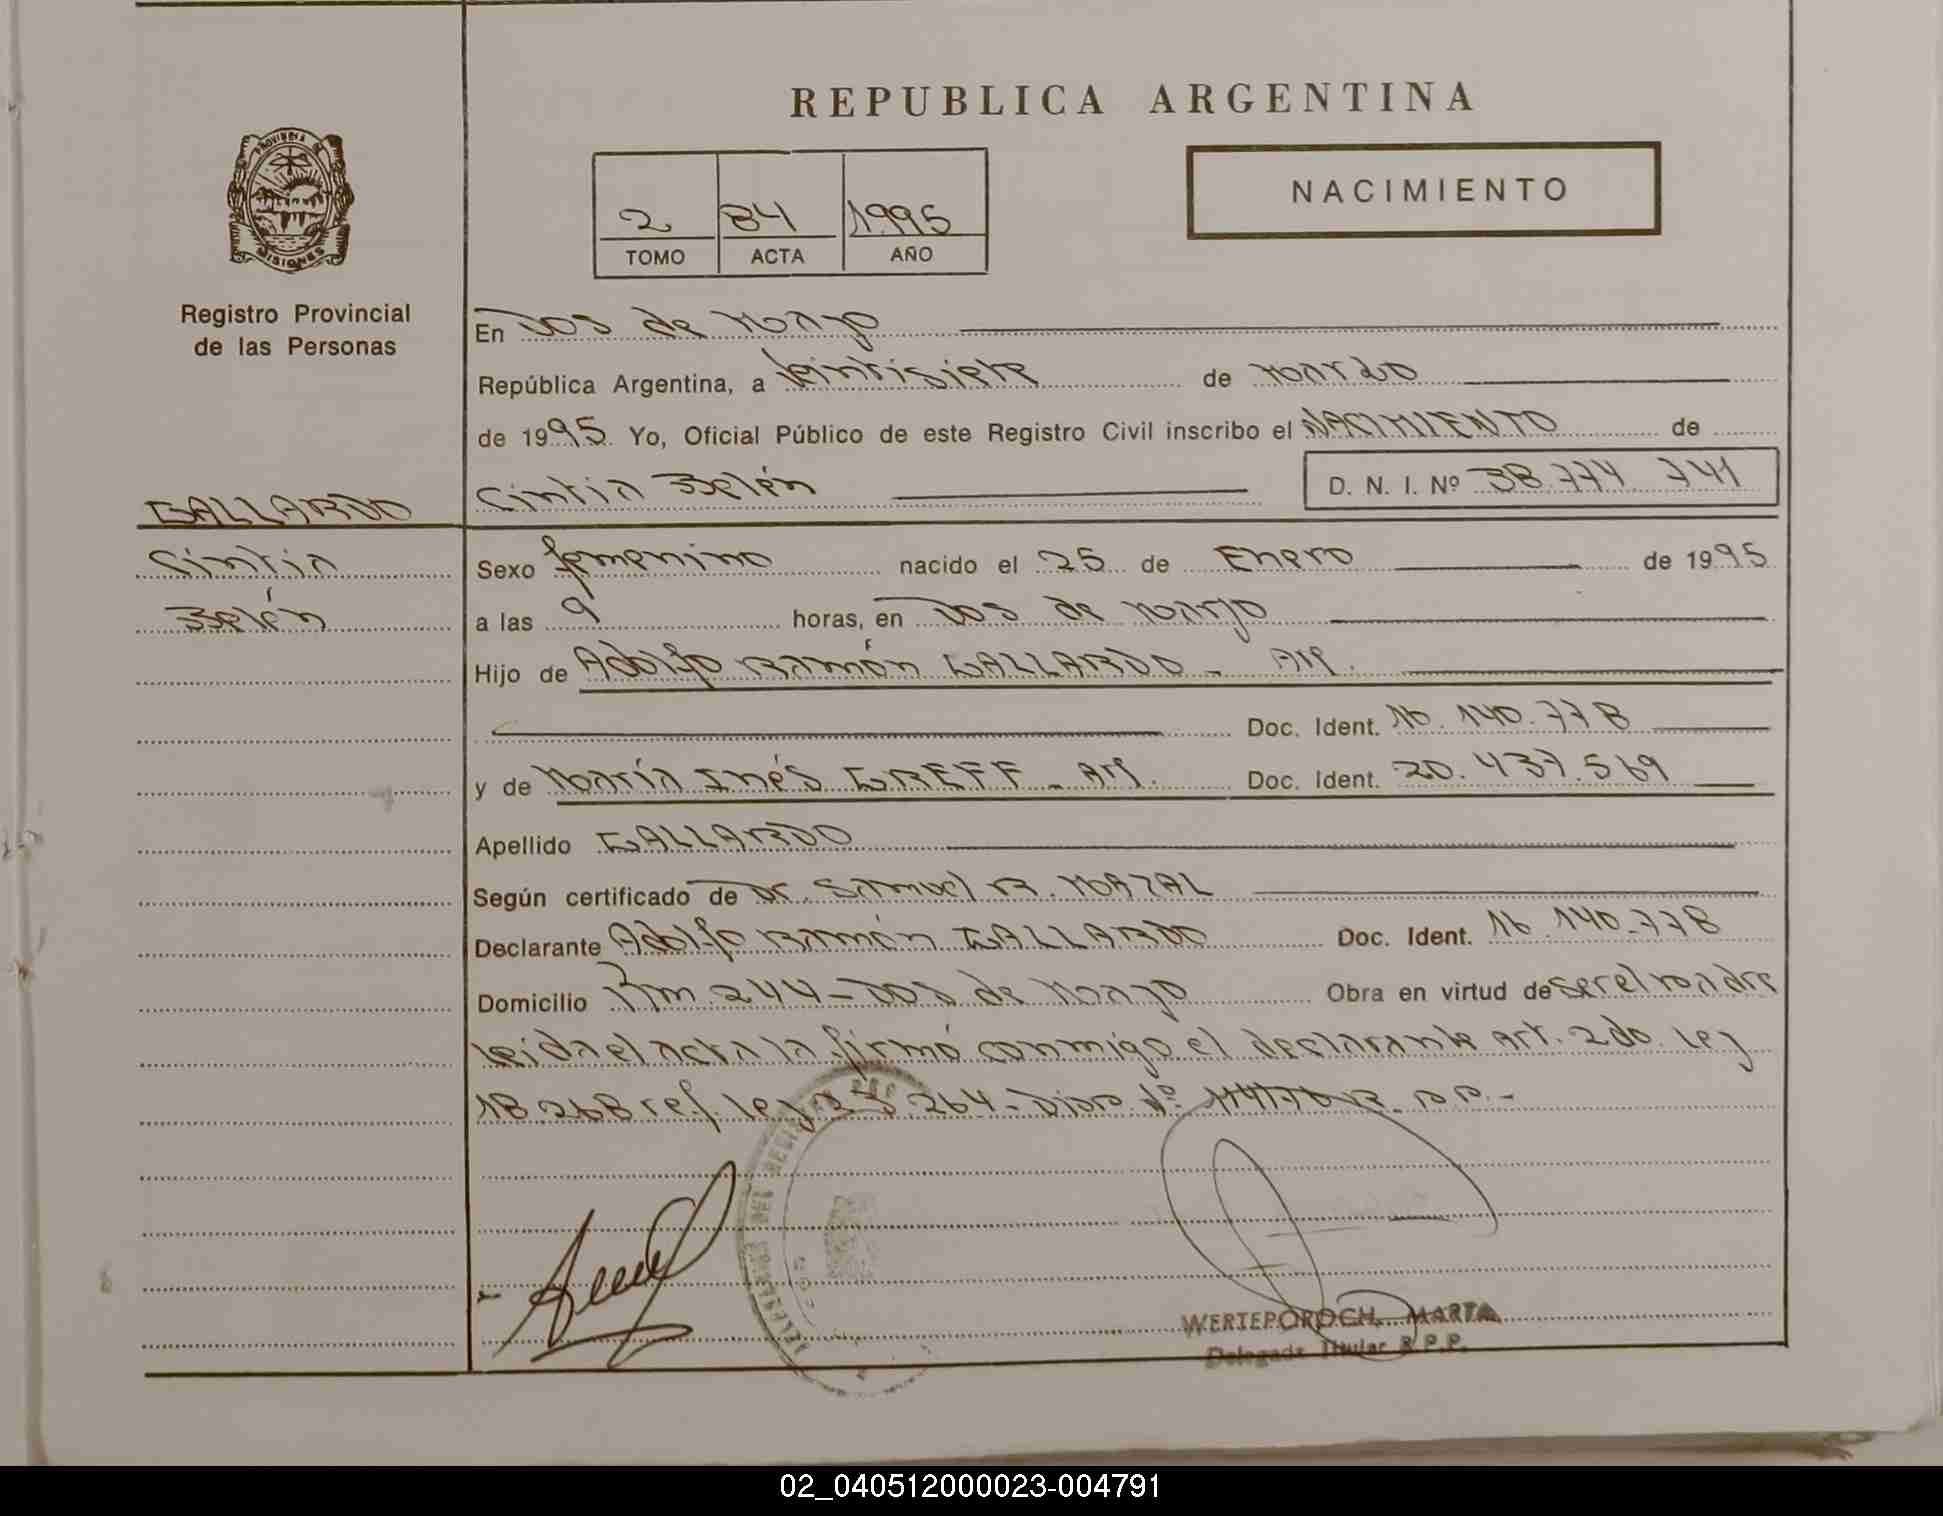 REPUBLICA ARGENTINA
PROVINCIA DE
MISIONES
Registro Provincial
de las Personas
NACIMIENTO
2 84 1995
TOMO ACTA AÑO
En Dos de Mayo
República Argentina, a Veintisiete de Marzo
de 1995 Yo, Oficial Público de este Registro Civil inscribo el NACIMIENTO de
GALLARDO
Cintia Belén D. N. I. Nº 38.774.741
Cintia
Belén
Sexo femenino nacido el 25 de Enero de 1995
a las 9 horas, en Dos de Mayo
Hijo de Adolfo Ramón GALLARDO - Arg.
Doc. Ident. 16.140.778
y de María Inés GREFF - Arg. Doc. Ident. 20.437.569
Apellido GALLARDO
Según certificado de Dr. Samuel R. MAZAL
Declarante Adolfo Ramón GALLARDO Doc. Ident. 16.140.778
Domicilio Km 244 - Dos de Mayo Obra en virtud de ser el padre
leida el acta la firmó conmigo el declarante Art. 2do. Ley
18.268 ref. ley 23.264 -
WERTEPOROCH, MARTA
Delegada Titular R.P.P.
02_040512000023-004791